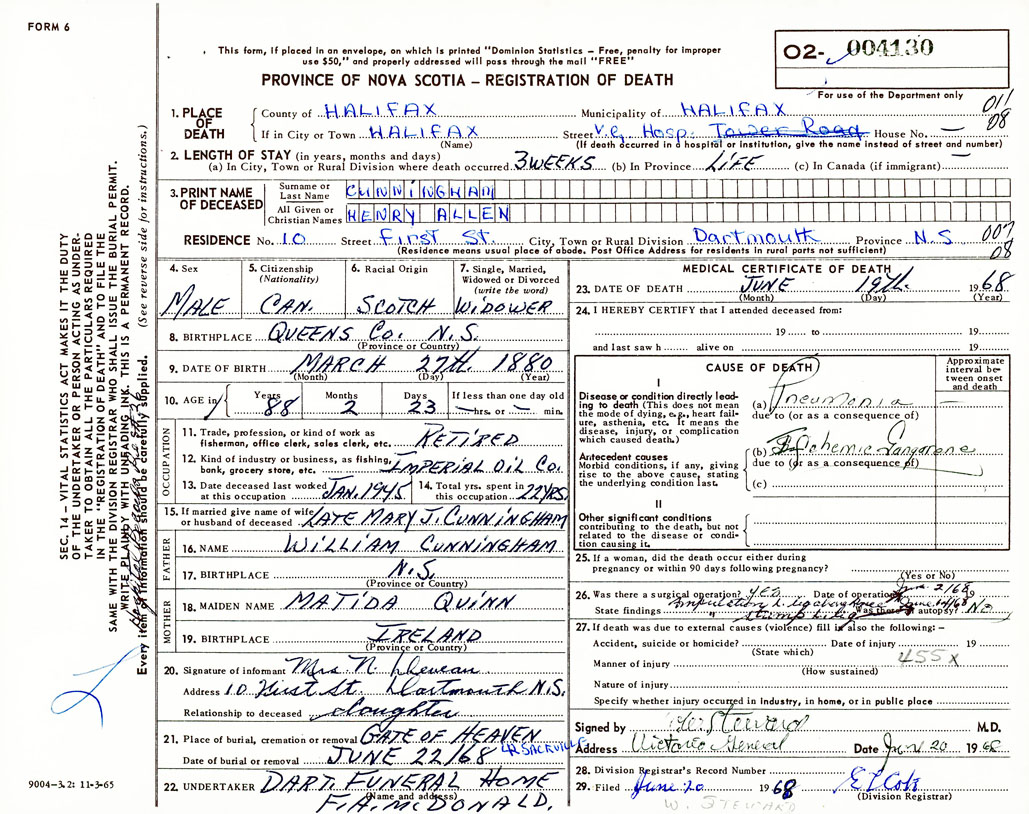 FORM 6
This form, if placed in an envelope, on which is printed "Dominion Statistics – Free, penalty for improper
use $50," and properly addressed will pass through the mail "FREE"
PROVINCE OF NOVA SCOTIA – REGISTRATION OF DEATH
O2- 004130
For use of the Department only
1. PLACE OF DEATH
County of HALIFAX Municipality of HALIFAX 011
If in City or Town HALIFAX Street V.G. Hosp. Tower Road House No. — 08
(Name) (If death occurred in a hospital or institution, give the name instead of street and number)
2. LENGTH OF STAY (in years, months and days)
(a) In City, Town or Rural Division where death occurred 3 WEEKS (b) In Province LIFE (c) In Canada (if immigrant) —
3. PRINT NAME OF DECEASED
Surname or Last Name CUNNINGHAM
All Given or Christian Names HENRY ALLEN
RESIDENCE No. 10 Street First St. City, Town or Rural Division Dartmouth Province N.S 007
(Residence means usual place of abode. Post Office Address for residents in rural parts not sufficient) 08
4. Sex MALE
5. Citizenship (Nationality) CAN.
6. Racial Origin SCOTCH
7. Single, Married, Widowed or Divorced (write the word) WIDOWER
8. BIRTHPLACE QUEENS Co. N.S.
(Province or Country)
9. DATE OF BIRTH MARCH 27th. 1880
(Month) (Day) (Year)
10. AGE in Years 88 Months 2 Days 23 If less than one day old — hrs. or — min.
OCCUPATION
11. Trade, profession, or kind of work as
fisherman, office clerk, sales clerk, etc. RETIRED
12. Kind of industry or business, as fishing,
bank, grocery store, etc. IMPERIAL OIL Co.
13. Date deceased last worked at this occupation JAN. 1945
14. Total yrs. spent in this occupation 22 YRS.
15. If married give name of wife
or husband of deceased LATE MARY J. CUNNINGHAM
FATHER
16. NAME WILLIAM CUNNINGHAM
17. BIRTHPLACE N.S.
(Province or Country)
MOTHER
18. MAIDEN NAME MATIDA QUINN
19. BIRTHPLACE IRELAND
(Province or Country)
20. Signature of informant Mrs. N.
Address 10 First St. Dartmouth N.S.
Relationship to deceased daughter
21. Place of burial, cremation or removal GATE OF HEAVEN
LR. SACKVILLE
Date of burial or removal JUNE 22/68
22. UNDERTAKER DART. FUNERAL HOME
(Name and address)
F.A. McDONALD.
MEDICAL CERTIFICATE OF DEATH
23. DATE OF DEATH JUNE 19th. 1968
(Month) (Day) (Year)
24. I HEREBY CERTIFY that I attended deceased from:
19 to 19
and last saw h alive on 19
CAUSE OF DEATH
Approximate interval between onset and death
I
Disease or condition directly lead-
ing to death (This does not mean
the mode of dying, e.g., heart fail-
ure, asthenia, etc. It means the
disease, injury, or complication
which caused death.)
(a) Pneumonia —
due to (or as a consequence of)
(b) Ischemic Gangrene
due to (or as a consequence of)
(c)
Antecedent causes
Morbid conditions, if any, giving
rise to the above cause, stating
the underlying condition last.
II
Other significant conditions
contributing to the death, but not
related to the disease or condi-
tion causing it.
25. If a woman, did the death occur either during
pregnancy or within 90 days following pregnancy?
(Yes or No)
26. Was there a surgical operation? YES Date of operation 2/68 19
State findings Amputation L leg June 14/68 Was there autopsy? No
stump
27. If death was due to external causes (violence) fill in also the following: –
Accident, suicide or homicide? Date of injury 19
(State which) 455X
Manner of injury
(How sustained)
Nature of injury
Specify whether injury occurred in Industry, in home, or in public place
Signed by Steward M.D.
Address Victoria General Date June 20 1968
28. Division Registrar's Record Number
29. Filed June 20 1968
(Division Registrar)
W. STEWARD
9004-3.2: 11-3-65
SEC. 14 – VITAL STATISTICS ACT MAKES IT THE DUTY
OF THE UNDERTAKER OR PERSON ACTING AS UNDER-
TAKER TO OBTAIN ALL THE PARTICULARS REQUIRED
IN THE "REGISTRATION OF DEATH" AND TO FILE THE
SAME WITH THE DIVISION REGISTRAR WHO SHALL ISSUE THE BURIAL PERMIT.
WRITE PLAINLY WITH UNFADING INK. THIS IS A PERMANENT RECORD.
Every item of information should be carefully supplied. (See reverse side for instructions.)